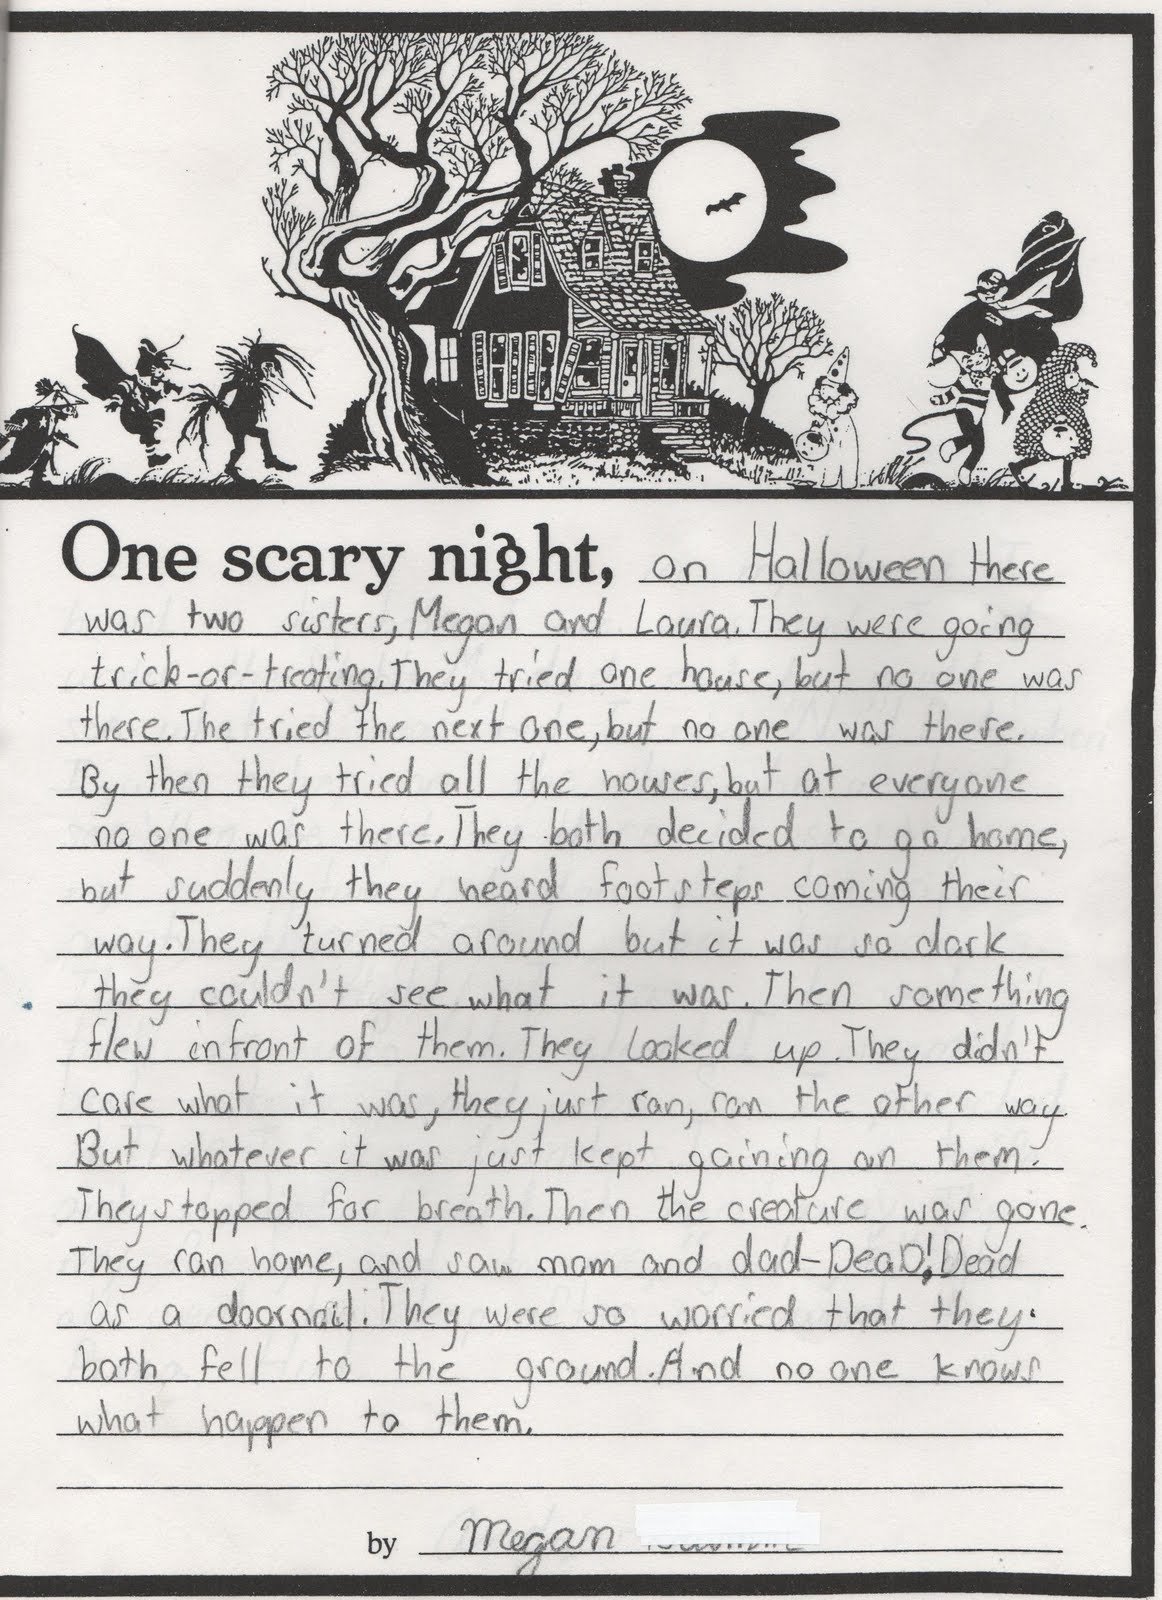 One scary night, on Halloween there
was two sisters, Megan and Laura. They were going
trick-or-treating. They tried one house, but no one was
there. The tried the next one, but no one was there.
By then they tried all the houses, but at everyone
no one was there. They both decided to go home,
but suddenly they heard footsteps coming their
way. They turned around but it was so dark
they couldn't see what it was. Then something
flew infront of them. They looked up. They didn't
care what it was, they just ran, ran the other way.
But whatever it was just kept gaining on them.
They stopped for breath. Then the creature was gone.
They ran home, and saw mom and dad-DeaD! Dead
as a doornail. They were so worried that they
both fell to the ground. And no one knows
what happen to them.
by Megan